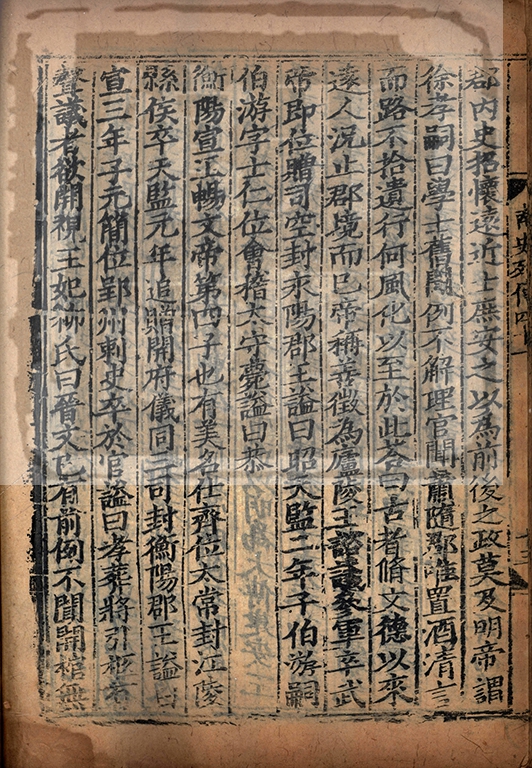 郡内史招懷遠近士庶安之以為前後之政莫及明帝謂
徐孝嗣曰學士舊聞例不解理官聞蕭隨郡唯置酒清言
而路不拾遺行何風化以至於此荅曰古者脩文德以來
遠人況止郡境而已帝稱善徵為廬陵王諮議參軍卒武
帝即位贈司空封永陽郡王謚曰昭天監二年子伯游嗣
伯游字士仁位會稽太守薨謚曰恭
衡陽宣王暢文帝第四子也有美名仕齊位太常封江陵
縣侯卒天監元年追贈開府儀同三司封衡陽郡王謚曰
宣三年子元簡位郢州刺史卒於官謚曰孝葬將引柩有
聲議者欲開視王妃柳氏曰晉文已有前例不聞開棺無